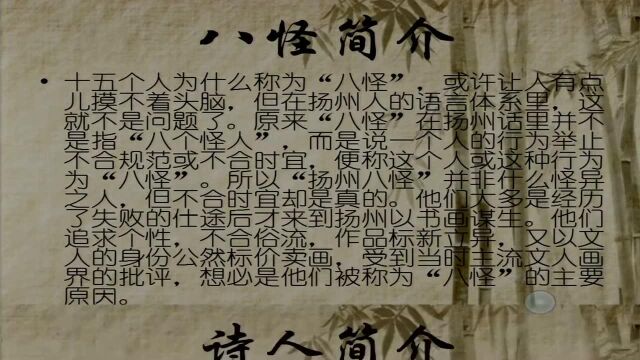 八怪简介
• 十五个人为什么称为“八怪”，或许让人有点
儿摸不着头脑，但在扬州人的语言体系里，这
就不是问题了。原来“八怪”在扬州话里并不
是指“八个怪人”，而是说一个人的行为举止
不合规范或不合时宜，便称这个人或这种行为
为“八怪”。所以“扬州八怪”并非什么怪异
之人，但不合时宜却是真的。他们大多是经历
了失败的仕途后才来到扬州以书画谋生。他们
追求个性，不合俗流，作品标新立异，又以文
人的身份公然标价卖画，受到当时三流文人画
界的批评，想必是他们被称为“八怪”的主要
原因。
诗人简介